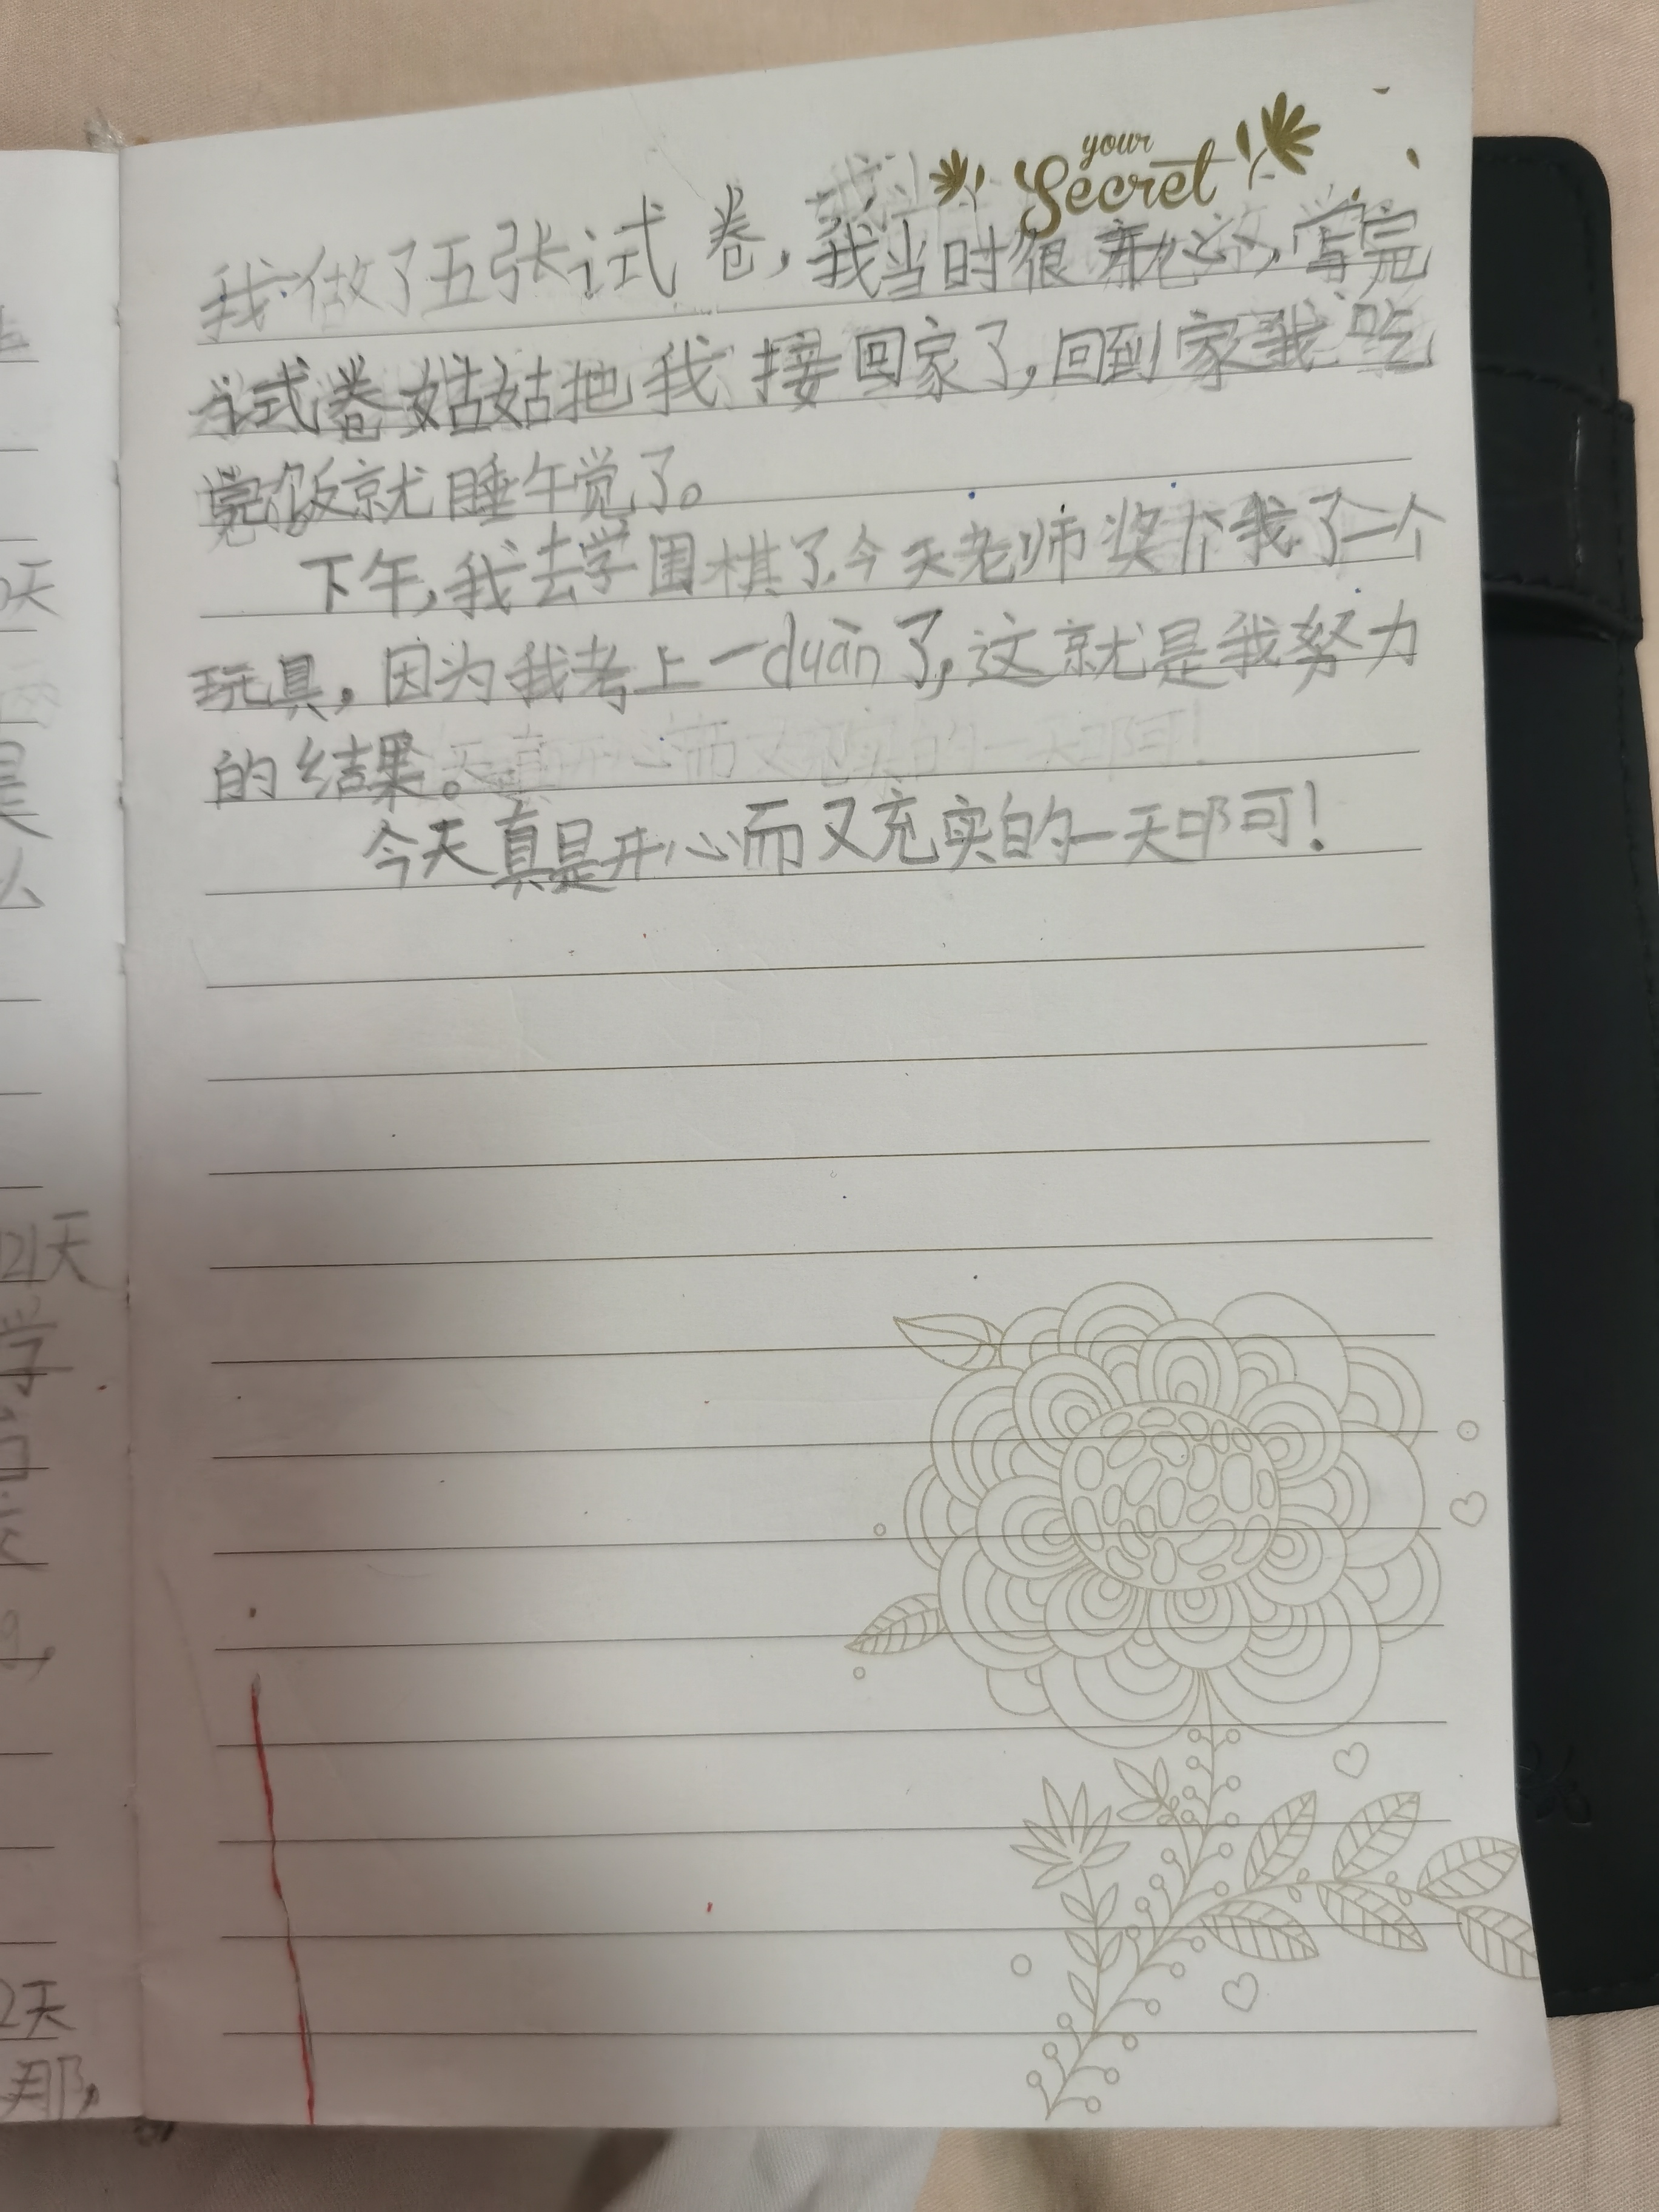 your
Secret
我做了五张试卷，我当时很开心，写完
试卷姑姑把我接回家了，回到家我吃
完饭就睡午觉了。
下午，我去学围棋了，今天老师奖我了一个
玩具，因为我考上一duàn了，这就是我努力
的结果。
今天真是开心而又充实的一天啊！
天
是
么
21天
学
2天
那，